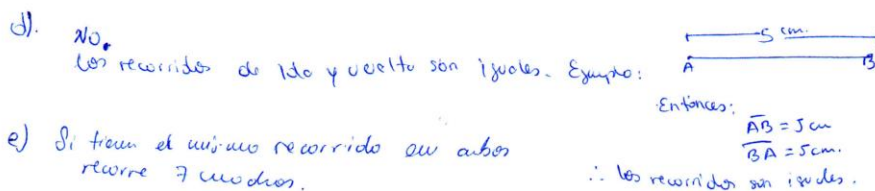 d). NO.
Los recorridos de Ida y vuelta son iguales. Ejemplo:
5 cm.
A B
Entonces:
AB = 5 cm
BA = 5 cm.
∴ los recorridos son iguales.
e) Si tienen el mismo recorrido en ambos
recorre 7 cuadras.